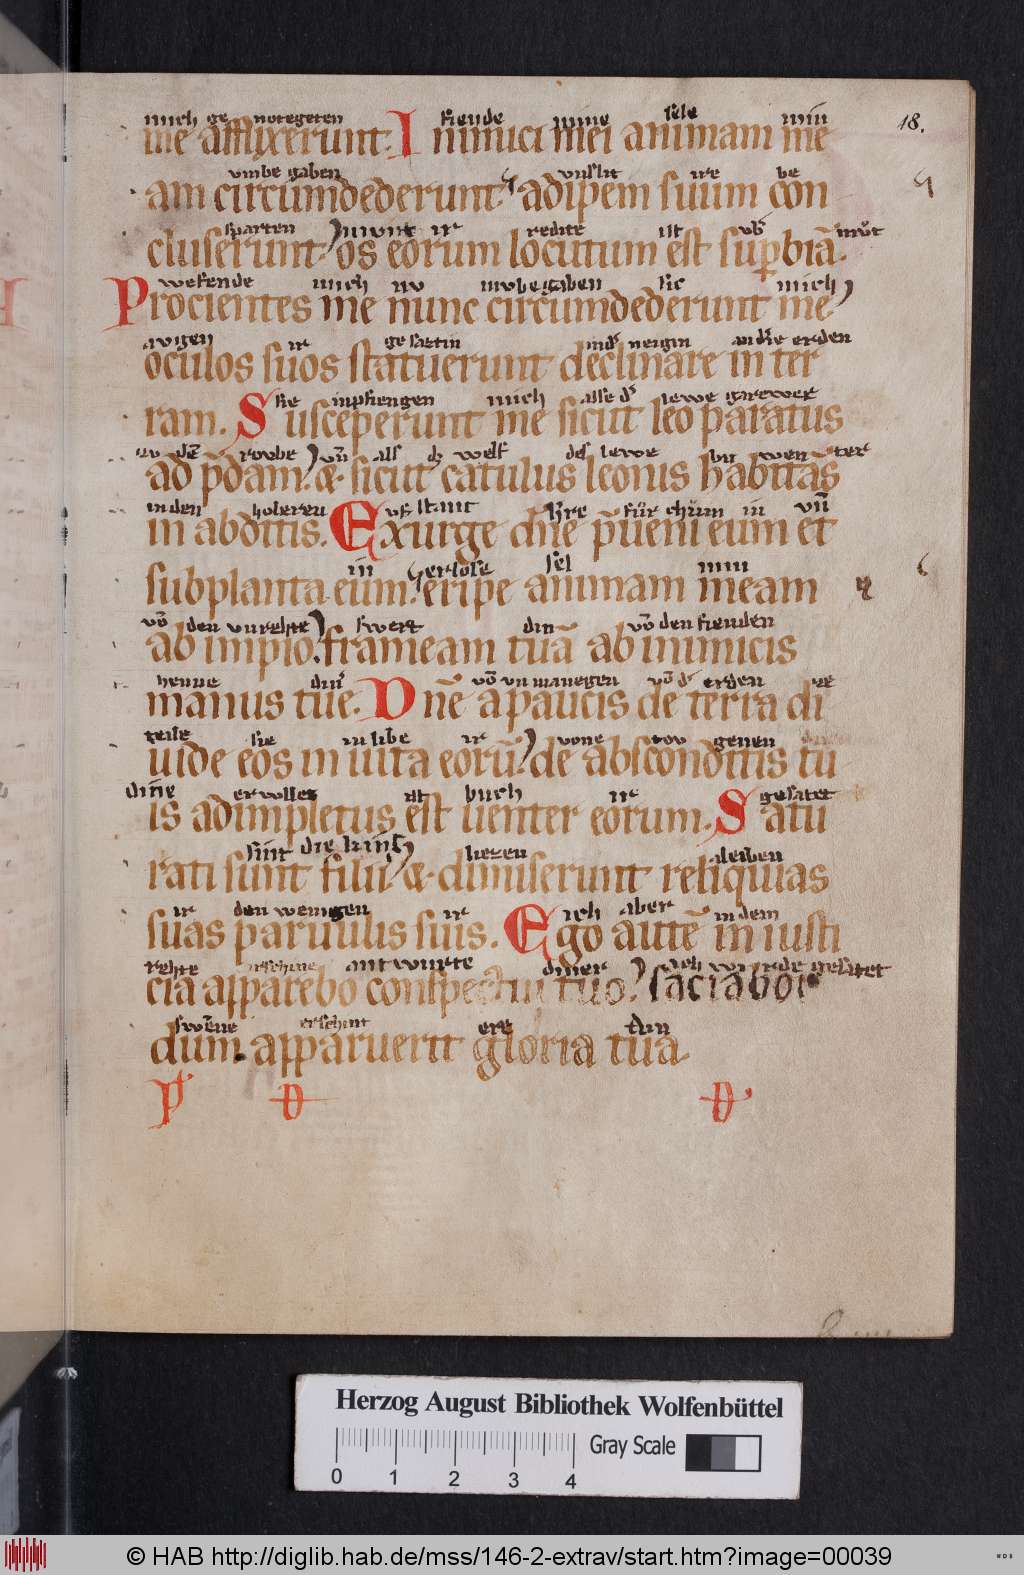 mich ge notegeten fiende mine sele min
me afflixerunt. Inimici mei animam me
18.
vmbe gaben vnslit ire be
am circumdederunt adipem suum con
sparten ir redite ist mŏt
cluserunt os eorum locutum est supbiā.
wefende mich nv mvbegaben sie mich
Procientes me nunc circumdederunt me
avgen ir gesaztin neigin erden
oculos suos statuerunt declinare in ter
Sie inphiengen mich alse lewe garewer
ram. Susceperunt me sicut leo paratus
rovbe vn̄ als welf des lewe wen ter
ad p̄dam. & sicut catulus leonis habitās
in den holeren stant hre fŭr chŭm in vn̄
in abditis. Exurge dn̄e p̄ueni eum et
in erlŏse sel min
subplanta eum. eripe animam meam
vō den vnrehte swert din vō den fienden
ab impio. frameam tuā ab inimicis
henne din vō vn manegen vō erden
manus tue. Dn̄e a paucis de terra di
teile sie in libe ir vone tov genen
uide eos in uita eorū. de absconditis tu
dine ervollet ist buch ir gesatet
is adimpletus est uenter eorum. Satu
sint die liezen aleiben
rati sunt filii & dimiserunt reliquias
ir den wenigen ir ich aber in dem
suas paruulis suis. Ego autē in iusti
rehte antwurte diner ich wurde gesatet
cia apparebo conspectui tuo. saciabor
swēne erschint ere din
dum apparuerit gloria tua.
Herzog August Bibliothek Wolfenbüttel
Gray Scale
0 1 2 3 4
© HAB http://diglib.hab.de/mss/146-2-extrav/start.htm?image=00039